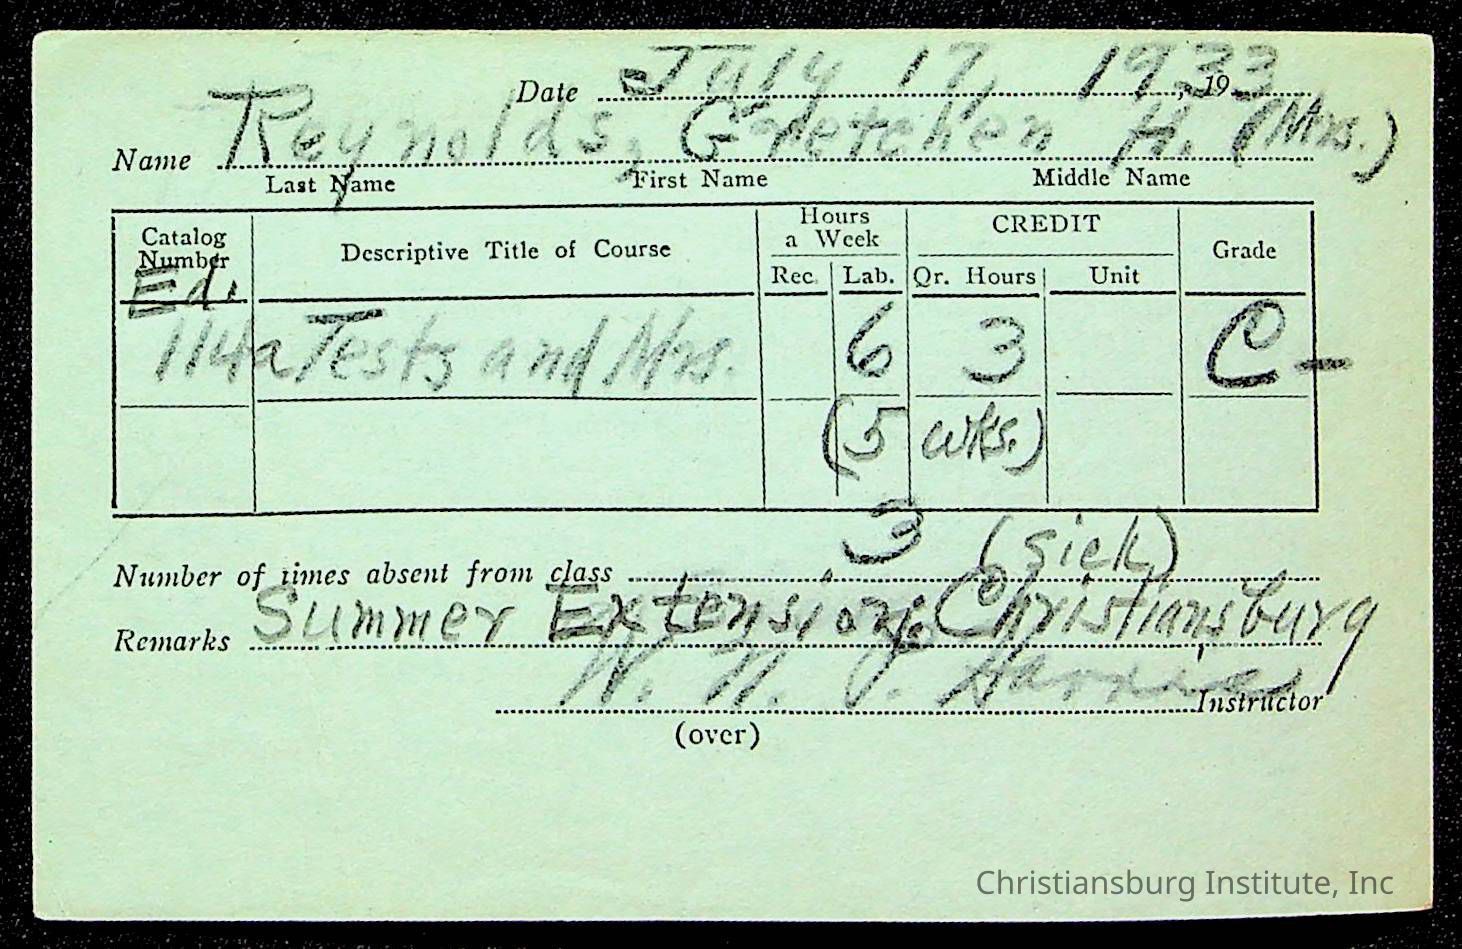 Date July 17, 1933, 19
Name Reynolds, Gretchen H. (Mrs.)
Last Name First Name Middle Name
Catalog Number Descriptive Title of Course Hours a Week CREDIT Grade
Rec. Lab. Qr. Hours Unit
Ed.
114a Tests and Mrs. 6 3 C-
(5 wks.)
Number of times absent from class 3 (sick)
Remarks Summer Extension, Christiansburg
W. N. P. Harris Instructor
(over)
Christiansburg Institute, Inc